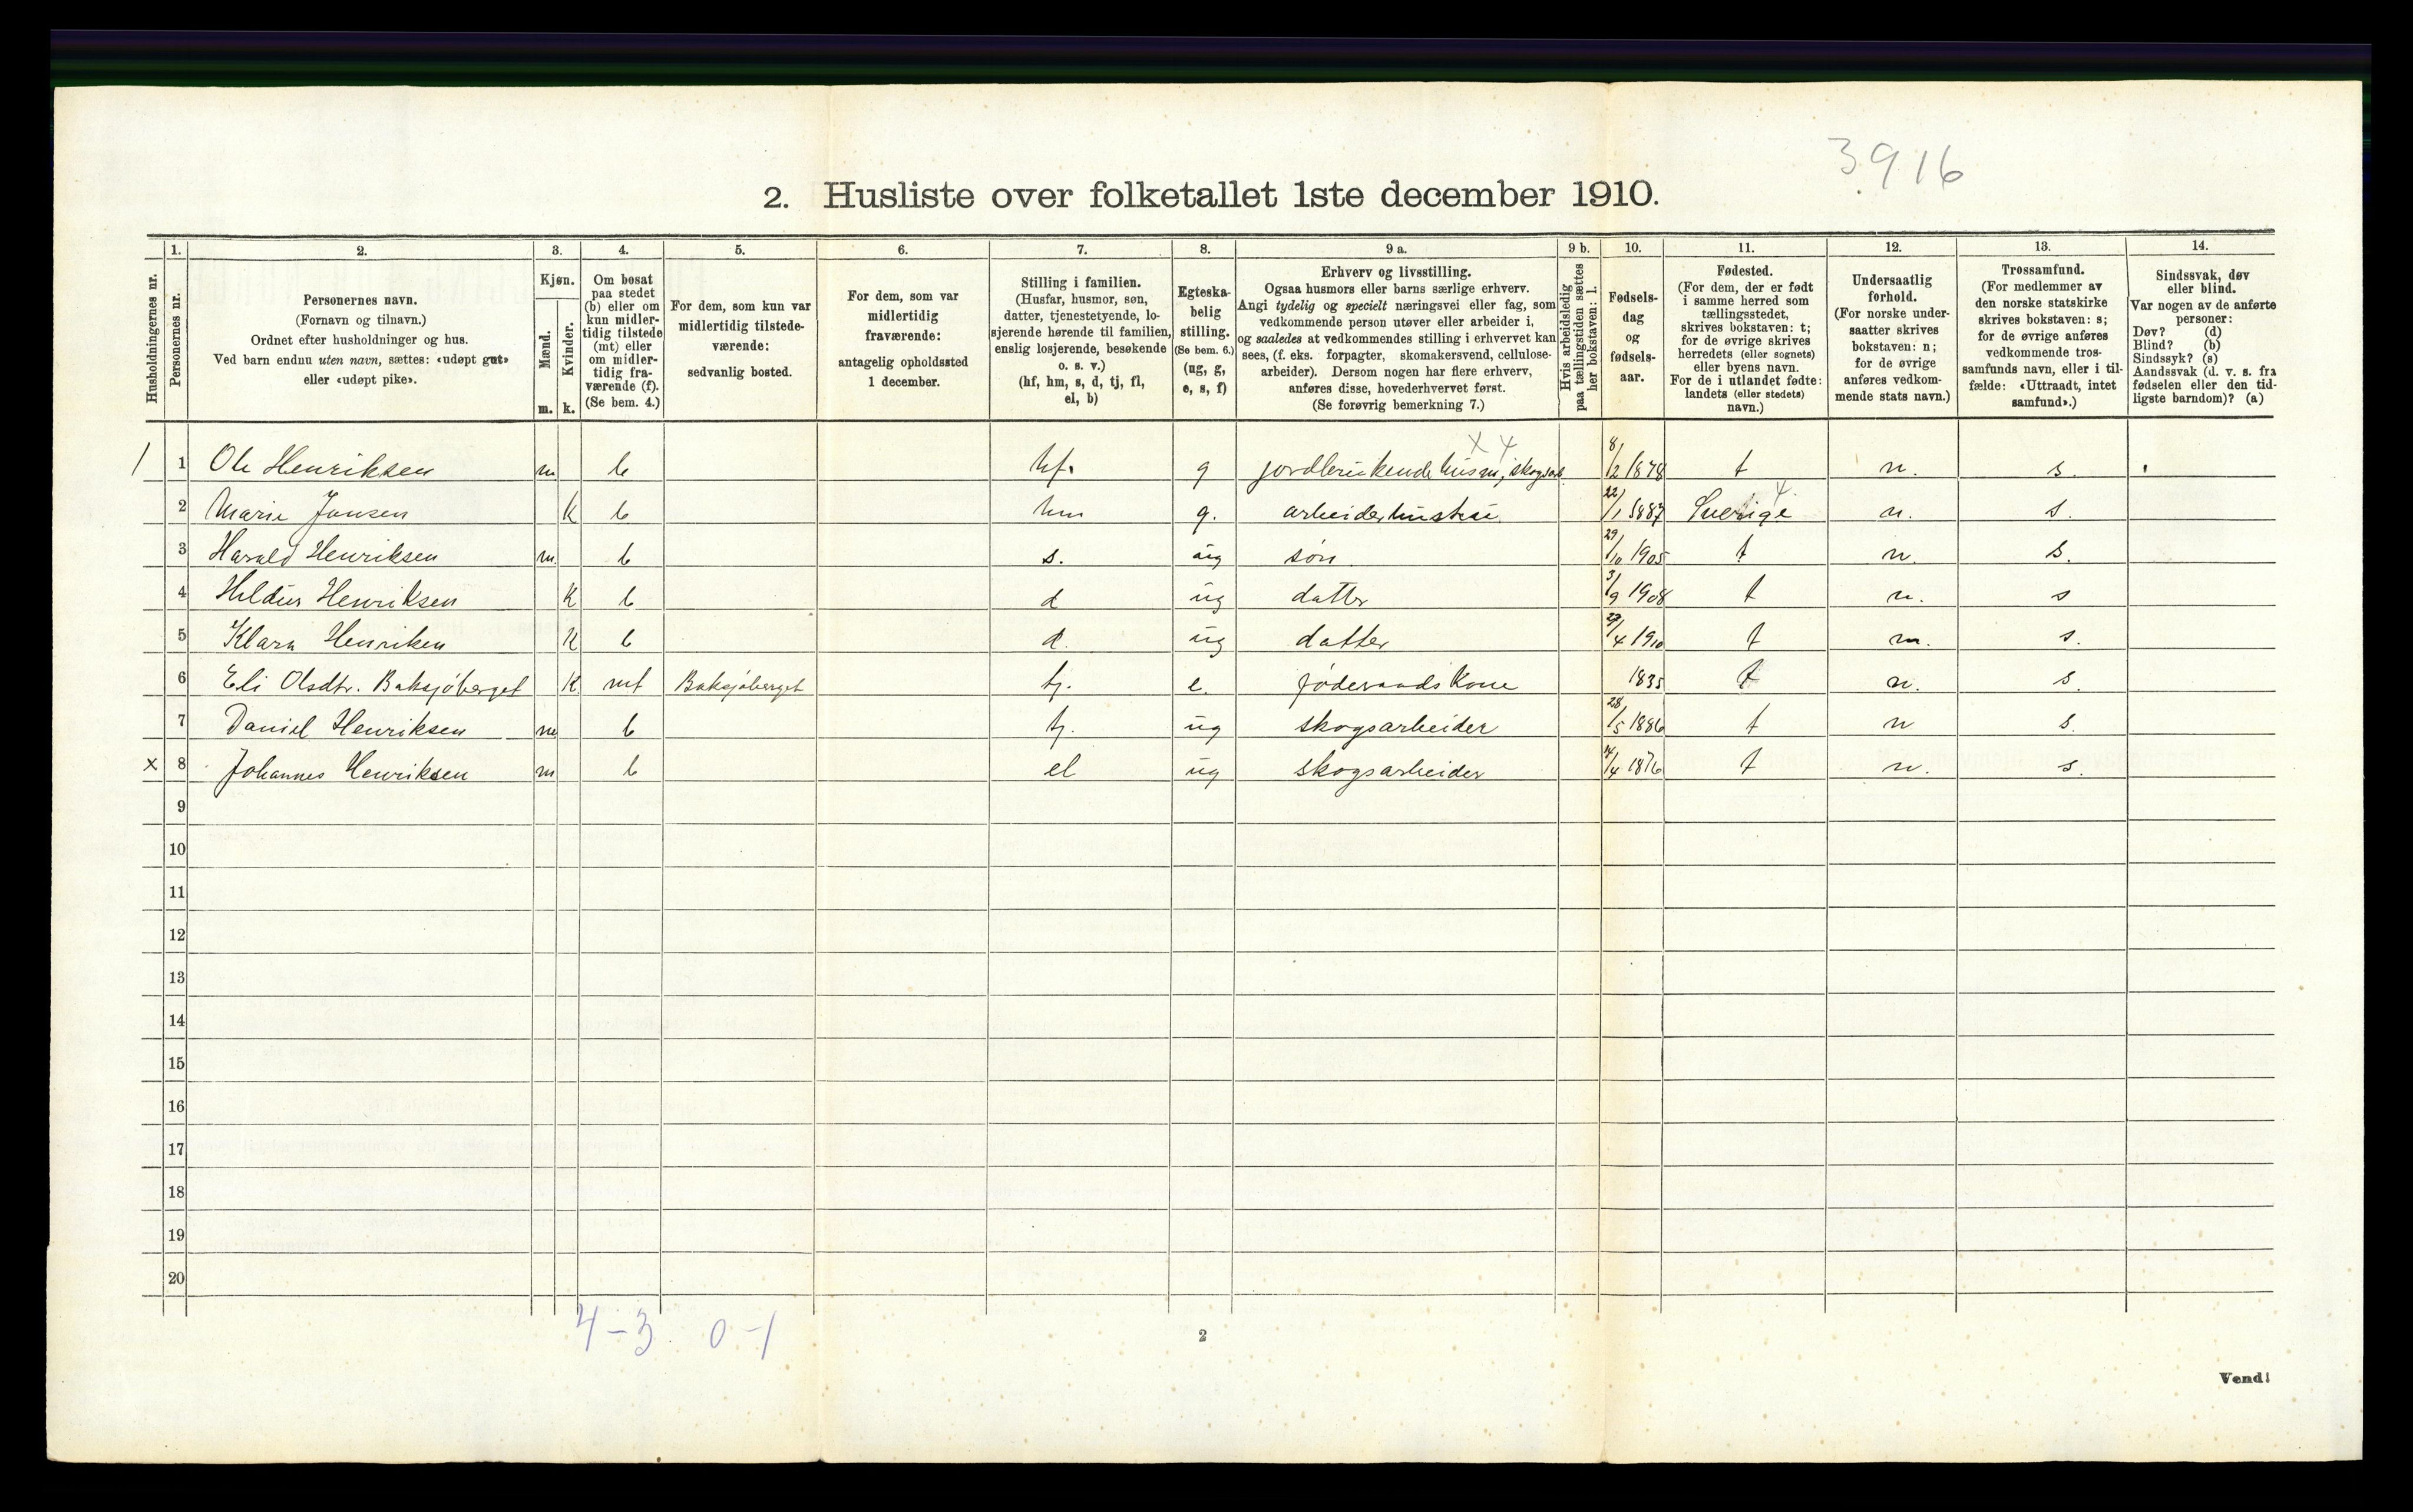 3916
2. Husliste over folketallet 1ste december 1910.
Husholdningernes nr.
1.
Personernes nr.
2.
Personernes navn.
(Fornavn og tilnavn.)
Ordnet efter husholdninger og hus.
Ved barn endnu uten navn, sættes: «udøpt gut»
eller «udøpt pike».
3.
Kjøn.
Mænd.
Kvinder.
m. k.
4.
Om bosat
paa stedet
(b) eller om
kun midler-
tidig tilstede
(mt) eller
om midler-
tidig fra-
værende (f).
(Se bem. 4.)
5.
For dem, som kun var
midlertidig tilstede-
værende:
sedvanlig bosted.
6.
For dem, som var
midlertidig
fraværende:
antagelig opholdssted
1 december.
7.
Stilling i familien.
(Husfar, husmor, søn,
datter, tjenestetyende, lo-
sjerende hørende til familien,
enslig losjerende, besøkende
o. s. v.)
(hf, hm, s, d, tj, fl,
el, b)
8.
Egteska-
belig
stilling.
(Se bem. 6.)
(ug, g,
e, s, f)
9 a.
Erhverv og livsstilling.
Ogsaa husmors eller barns særlige erhverv.
Angi tydelig og specielt næringsvei eller fag, som
vedkommende person utøver eller arbeider i,
og saaledes at vedkommendes stilling i erhvervet kan
sees, (f. eks. forpagter, skomakersvend, cellulose-
arbeider). Dersom nogen har flere erhverv,
anføres disse, hovederhvervet først.
(Se forøvrig bemerkning 7.)
9 b.
Hvis arbeidsledig
paa tællingstiden sættes
her bokstaven: l.
10.
Fødsels-
dag
og
fødsels-
aar.
11.
Fødested.
(For dem, der er født
i samme herred som
tællingsstedet,
skrives bokstaven: t;
for de øvrige skrives
herredets (eller sognets)
eller byens navn.
For de i utlandet fødte:
landets (eller stedets)
navn.)
12.
Undersaatlig
forhold.
(For norske under-
saatter skrives
bokstaven: n;
for de øvrige
anføres vedkom-
mende stats navn.)
13.
Trossamfund.
(For medlemmer av
den norske statskirke
skrives bokstaven: s;
for de øvrige anføres
vedkommende tros-
samfunds navn, eller i til-
fælde: «Uttraadt, intet
samfund».)
14.
Sindssvak, døv
eller blind.
Var nogen av de anførte
personer:
Døv? (d)
Blind? (b)
Sindssyk? (s)
Aandssvak (d. v. s. fra
fødselen eller den tid-
ligste barndom)? (a)
x 4
1 1 Ole Henriksen m b hf. g jordbrukende husm, skogsarb 8/2 1878 t n. s.
2 Marie Jonsen k b hm g. arbeiderhustru 22/1 1887 Sverige n. s.
3 Harald Henriksen m b s. ug søn 29/10 1905 t n. s.
4 Hildur Henriksen k b d ug datter 3/9 1908 t n. s
5 Klara Henriken k b d. ug datter 29/4 1910 t n. s.
6 Eli Olsdtr. Baksjøberget k mt Baksjøberget tj. e. føderaads kone 1835 t n. s.
7 Daniel Henriksen m b tj. ug skogsarbeider 28/5 1886 t n s.
x 8 Johannes Henriksen m b el ug skogsarbeider 14/4 1876 t n. s.
9
10
11
12
13
14
15
16
17
18
19
20
4-3 0-1
2
Vend!